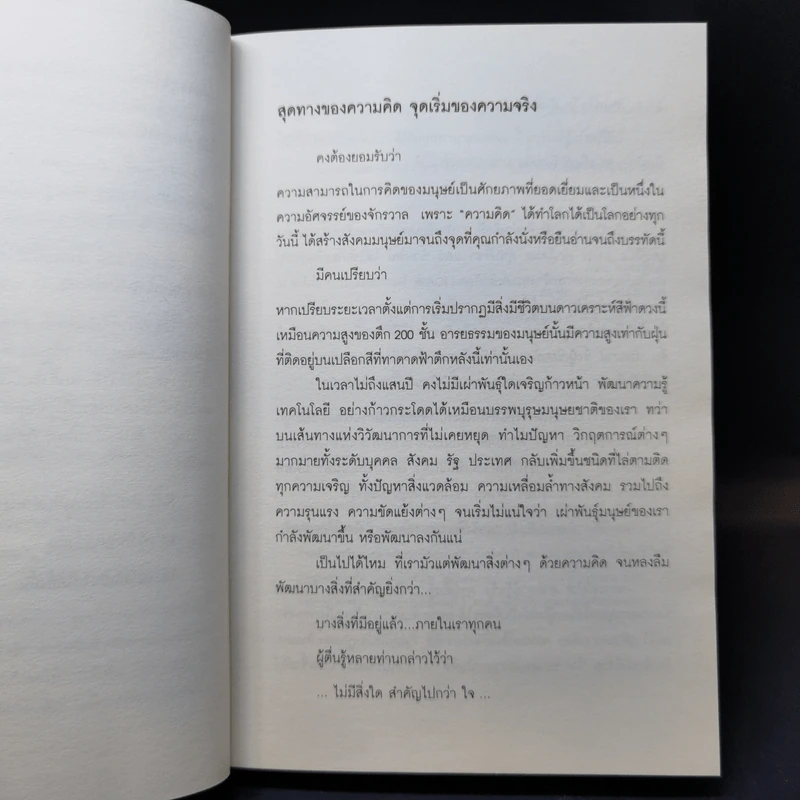 สุดทางของความคิด จุดเริ่มของความจริง
คงต้องยอมรับว่า
ความสามารถในการคิดของมนุษย์เป็นศักยภาพที่ยอดเยี่ยมและเป็นหนึ่งใน
ความอัศจรรย์ของจักรวาล เพราะ "ความคิด" ได้ทำโลกได้เป็นโลกอย่างทุก
วันนี้ ได้สร้างสังคมมนุษย์มาจนถึงจุดที่คุณกำลังนั่งหรือยืนอ่านจนถึงบรรทัดนี้
มีคนเปรียบว่า
หากเปรียบระยะเวลาตั้งแต่การเริ่มปรากฏมีสิ่งมีชีวิตบนดาวเคราะห์สีฟ้าดวงนี้
เหมือนความสูงของตึก 200 ชั้น อารยธรรมของมนุษย์นั้นมีความสูงเท่ากับฝุ่น
ที่ติดอยู่บนเปลือกสีที่ทาดาดฟ้าตึกหลังนี้เท่านั้นเอง
ในเวลาไม่ถึงแสนปี คงไม่มีเผ่าพันธุ์ใดเจริญก้าวหน้า พัฒนาความรู้
เทคโนโลยี อย่างก้าวกระโดดได้เหมือนบรรพบุรุษมนุษยชาติของเรา ทว่า
บนเส้นทางแห่งวิวัฒนาการที่ไม่เคยหยุด ทำไมปัญหา วิกฤตการณ์ต่างๆ
มากมายทั้งระดับบุคคล สังคม รัฐ ประเทศ กลับเพิ่มขึ้นชนิดที่ไล่ตามติด
ทุกความเจริญ ทั้งปัญหาสิ่งแวดล้อม ความเหลื่อมล้ำทางสังคม รวมไปถึง
ความรุนแรง ความขัดแย้งต่างๆ จนเริ่มไม่แน่ใจว่า เผ่าพันธุ์มนุษย์ของเรา
กำลังพัฒนาขึ้น หรือพัฒนาลงกันแน่
เป็นไปได้ไหม ที่เรามัวแต่พัฒนาสิ่งต่างๆ ด้วยความคิด จนหลงลืม
พัฒนาบางสิ่งที่สำคัญยิ่งกว่า...
บางสิ่งที่มีอยู่แล้ว...ภายในเราทุกคน
ผู้ตื่นรู้หลายท่านกล่าวไว้ว่า
... ไม่มีสิ่งใด สำคัญไปกว่า ใจ ...